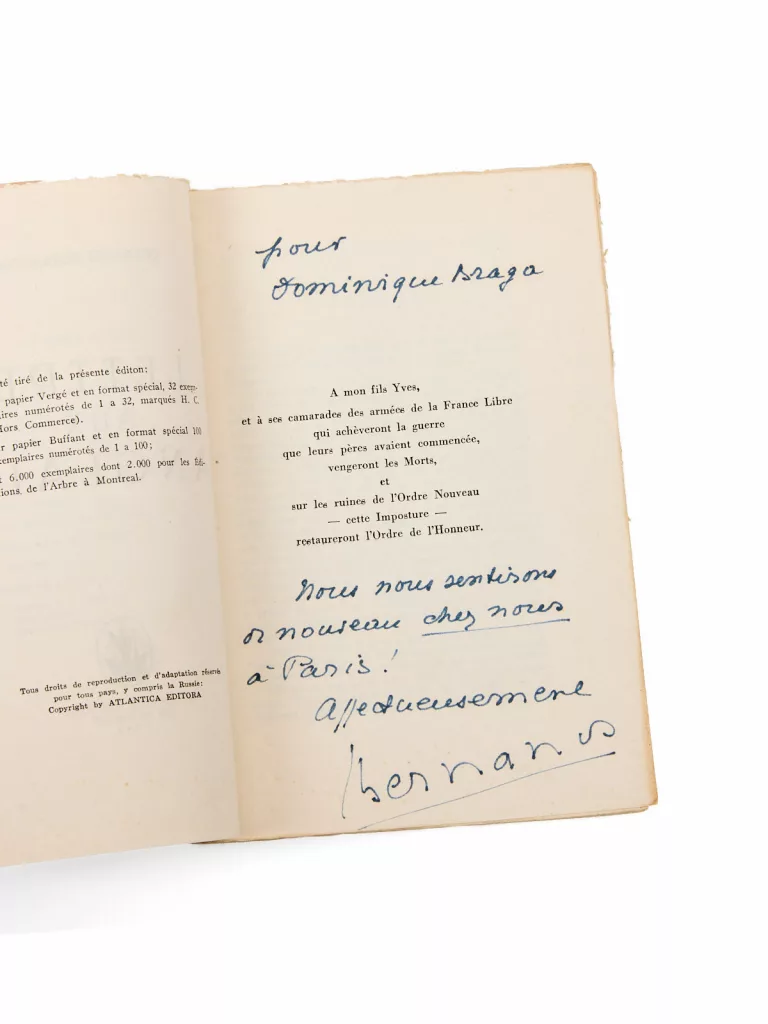 té tiré de la présente éditon:
papier Vergé et en format spécial, 32 exem-
aires numérotés de 1 a 32, marqués H. C.
Hors Commerce).
r papier Buffant et en format spécial 100
exemplaires numérotés de 1 a 100;
6.000 exemplaires dont 2.000 pour les Édi-
tions, de l'Arbre à Montreal.
Tous droits de reproduction et d'adaptation réservés
pour tous pays, y compris la Russie:
Copyright by ATLANTICA EDITORA
pour
Dominique Braga
A mon fils Yves,
et à ses camarades des armées de la France Libre
qui achèveront la guerre
que leurs pères avaient commencée,
vengeront les Morts,
et
sur les ruines de l'Ordre Nouveau
— cette Imposture —
restaureront l'Ordre de l'Honneur.
Nous nous
nouveau chez nous
à Paris!
Affectueusement
Bernanos